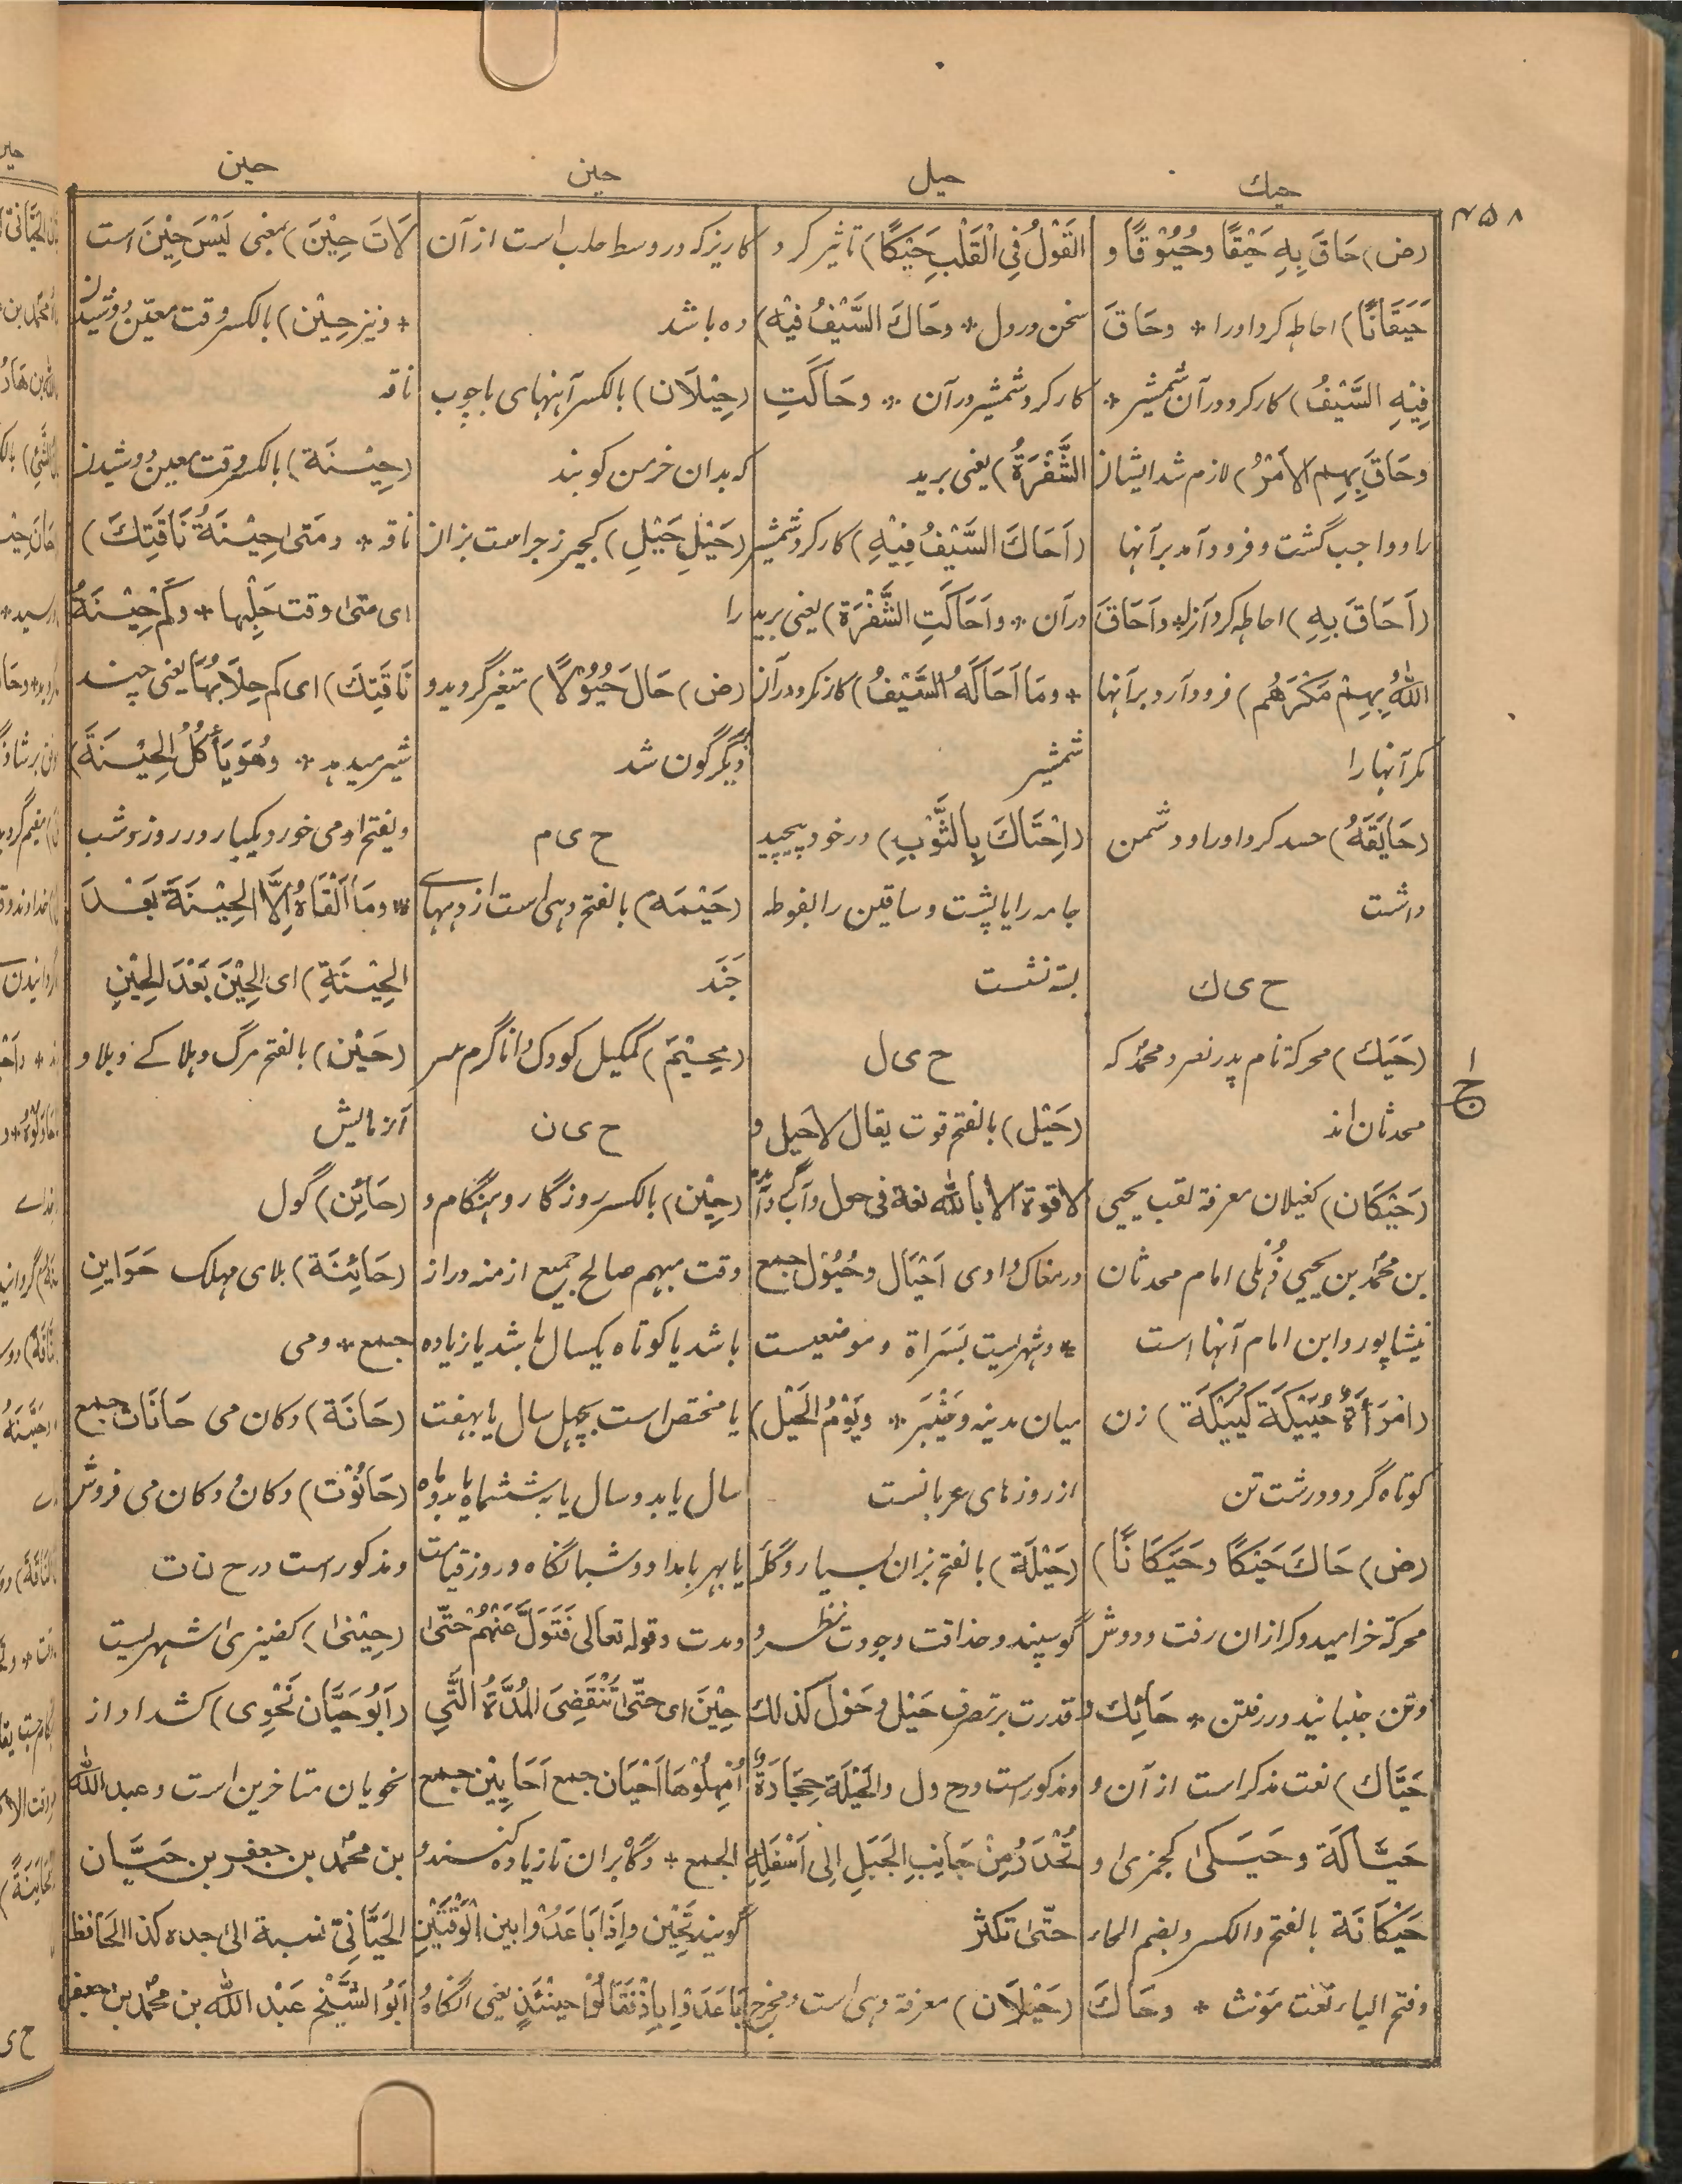 حیك
حیل
حین
حین
۴۵۸
(ض) حَاقَ بِهِ حَیْقًا و حُیُوْقًا و
حَیَقَانًا) احاطه کرد اورا * وحَاقَ
فِیْهِ السَّیْفُ) کار کرد در آن شمشیر *
وحَاقَ بِهِم الاَمْرُ) لازم شد ایشان
را و واجب گشت و فرود آمد بر آنها
(اَحَاقَ بِهِ) احاطه کرد آنرا * واَحَاقَ
اللهُ بِهِمْ مَکْرَهُم) فرود آرد بر آنها
مکر آنها را
(حَایَقَهُ) حسد کرد اورا و دشمن
داشت
ح ی ك
(حَیَك) محرکة نام پدر نصر و محمد که
محدثان اند
(حَیْکَان) کغیلان معرفة لقب یحیی
بن محمد بن یحیی ذُهْلی امام محدثان
نیشاپور و ابن امام آنها است
(امْرَأَةٌ حُیَیْکَة کُیَیْکَة) زن
کوتاه گرد و درشت تن
(ض) حَاكَ حَیْکًا و حَیَکَانًا)
محرکة خرامید و کرازان رفت و دوش
و تن جنبانید در رفتن * حَائِك و
حَیَّاك) نعت مذکر است از آن و
حَیَّاکَة و حَیَکٰی کجمزی و
حَیْکَانَة بالفتح والکسر وبضم الحاء
وفتح الیاء نعت مؤنث * وحَاكَ
القَوْلُ فِی الْقَلْبِ حَیْکًا) تاثیر کرد
سخن در دل * وحَاكَ السَّیْفُ فِیْهِ)
کار کرد شمشیر در آن * وحَاکَتِ
الشَّفْرَةُ) یعنی برید
(اَحَاكَ السَّیْفُ فِیْهِ) کار کرد شمشیر
در آن * واَحَاکَتِ الشَّفْرَة) یعنی برید
* ومَا اَحَاکَهُ السَّیْفُ) کار نکرد در آن
شمشیر
(اِحْتَاكَ بِالثَّوْبِ) در خود پیچید
جامه را یا پشت و ساقین را بفوطه
بسته نشست
ح ی ل
(حَیْل) بالفتح قوت یقال لاحیل و
لا قوة الا بالله لغة فی حول و آب
در مغاک وادی اَحْیَال و حُیُوْل جمع
* و شهریست بسَرَاة و موضعیست
میان مدینه و خَیْبَر * ویَوْمُ الحَیْل)
از روزهای عربانست
(حَیْلَة) بالفتح بزان بسیار و گله
گوسپند و حذاقت و جودت نظر و
قدرت بر تصرف حَیْل و حَوْل کذلك
و مذکور است در ح ول والحَیْلَة حِجَارَةٌ
تُحْدَرُ مِنْ جَانِبِ الجَبَلِ اِلٰی اَسْفَلِهِ
حتّٰی تکثر
(حَیْلَان) معرفة دهی است و مخرج
کاریز که در وسط حلب است از آن
ده باشد
(حِیْلَان) بالکسر آهنهای با چوب
که بدان خرمن کوبند
(حَیْلِ حَیْلِ) کجیر زجر است بزان
را
(ض) حَالَ حُیُوْلًا) متغیر گردید و
دیگر گون شد
ح ی م
(حَیْمَه) بالفتح دهی است از دههای
جَنَد
(مِحْیَم) کمکیل کودک دانا گرم سر
ح ی ن
(حِیْن) بالکسر روزگار و هنگام و
وقت مبهم صالح جمیع ازمنه دراز
باشد یا کوتاه یکسال باشد یا زیاده
یا مختص است بچهل سال یا بهفت
سال یا بدو سال یا به ششماه یا بدو ماه
یا بهر بامداد و شبانگاه و روز قیامت
و مدت و قوله تعالی فَتَوَلَّ عَنْهُمْ حَتّٰی
حِیْنَ ای حتّٰی تَنْقَضِیَ المُدَّةُ الَّتِی
اُمْهِلُوْهَا اَحْیَان جمع اَحَایِیْن جمع
الجمع * و گاه بران تا زیاده کنند و
گویند تَحِیْن واِذَا بَاعَدُوْا بین الوَقْتَیْنِ
بَاعَدُوْا بِاِذْ فَقَالُوْا حینَئِذٍ یعنی آنگاه و
لَاتَ حِیْنَ) بمعنی لَیْسَ حِیْنَ است
* و نیز حِیْن) بالکسر وقت معیّن دوشیدن
ناقه
(حِیْنَة) بالکسر وقت معین دوشیدن
ناقه * ومَتٰی حِیْنَةُ نَاقَتِكَ)
ای متٰی وقت حَلْبِها * وکَمْ حِیْنَةُ
نَاقَتِكَ) ای کم حِلَابُهَا یعنی چند
شیر میدهد * وهُوَ یَأکُلُ الحِیْنَةَ)
ویفتح او می خورد یکبار در روز و شب
* ومَا اَلْقَاهُ اِلَّا الحِیْنَةَ بَعْدَ
الحِیْنَةِ) ای الحِیْنَ بَعْدَ الحِیْنِ
(حَیْن) بالفتح مرگ و هلاک و بلا و
آزمایش
(حَائِن) گول
(حَائِنَة) بلای مهلک حَوَایِن
جمع * و می
(حَانَة) دکان می حَانَات جمع
(حَانُوْت) دکان و دکان می فروش
و مذکور است در ح ن ت
(حِیْنٰی) کضیزی شهریست
(اَبُو حَیَّان نَحْوِی) کشداد از
نحویان متاخرین است و عبد الله
بن محمد بن جعفر بن حَیَّان
الحَیَّانِیّ نسبة الی جده کذا الحَافظ
اَبُو الشَّیْخ عَبْد الله بن محمد بن جعفر
ح ی